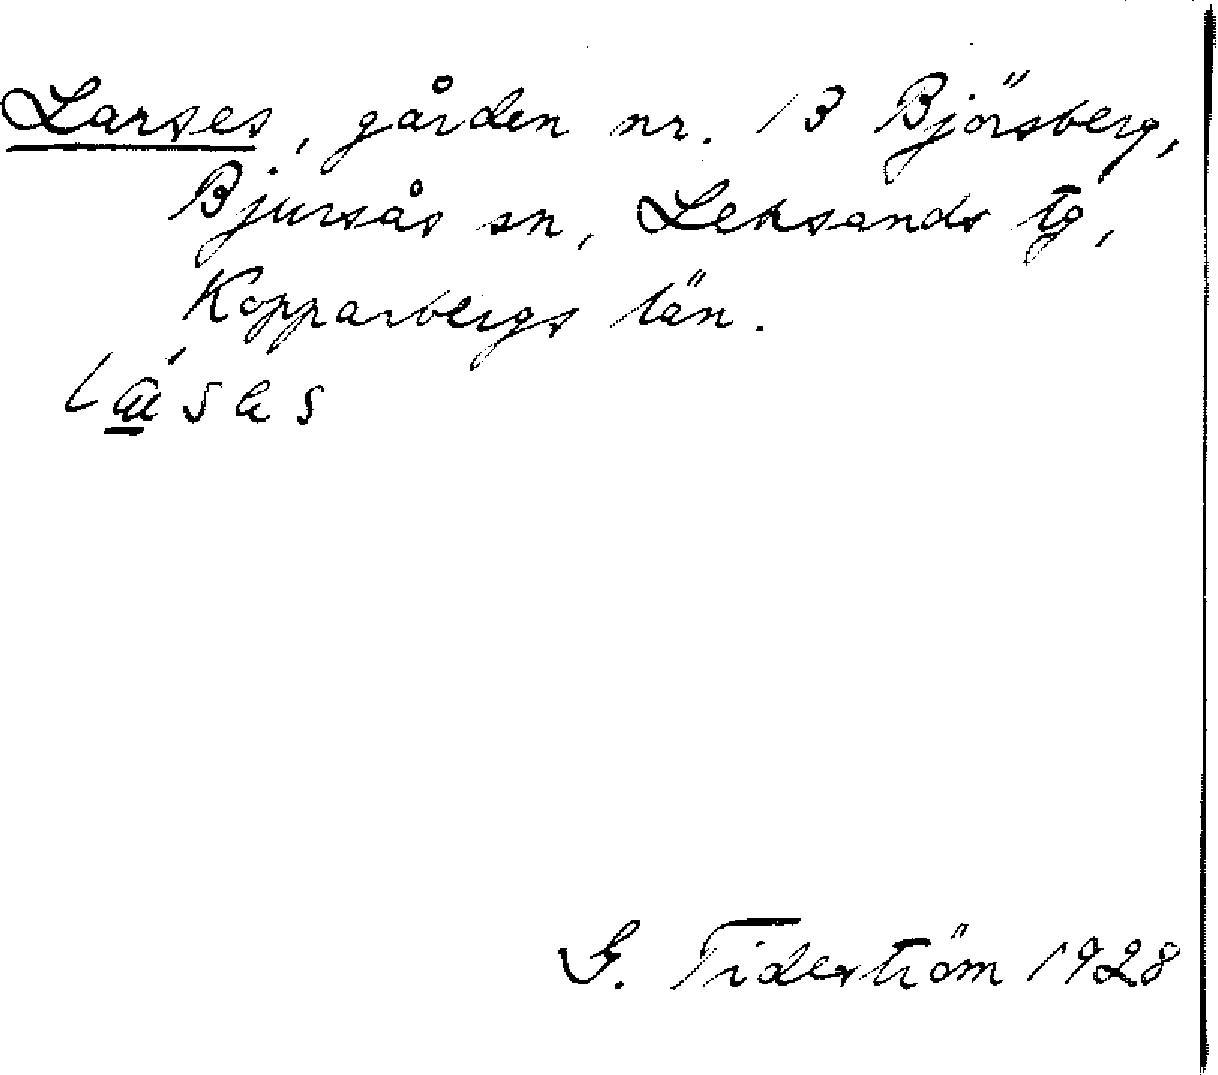 Larses, gården nr. 13 Björsberg,
Bjursås sn, Leksands tg,
Kopparbergs län.
G. Tiderström 1928